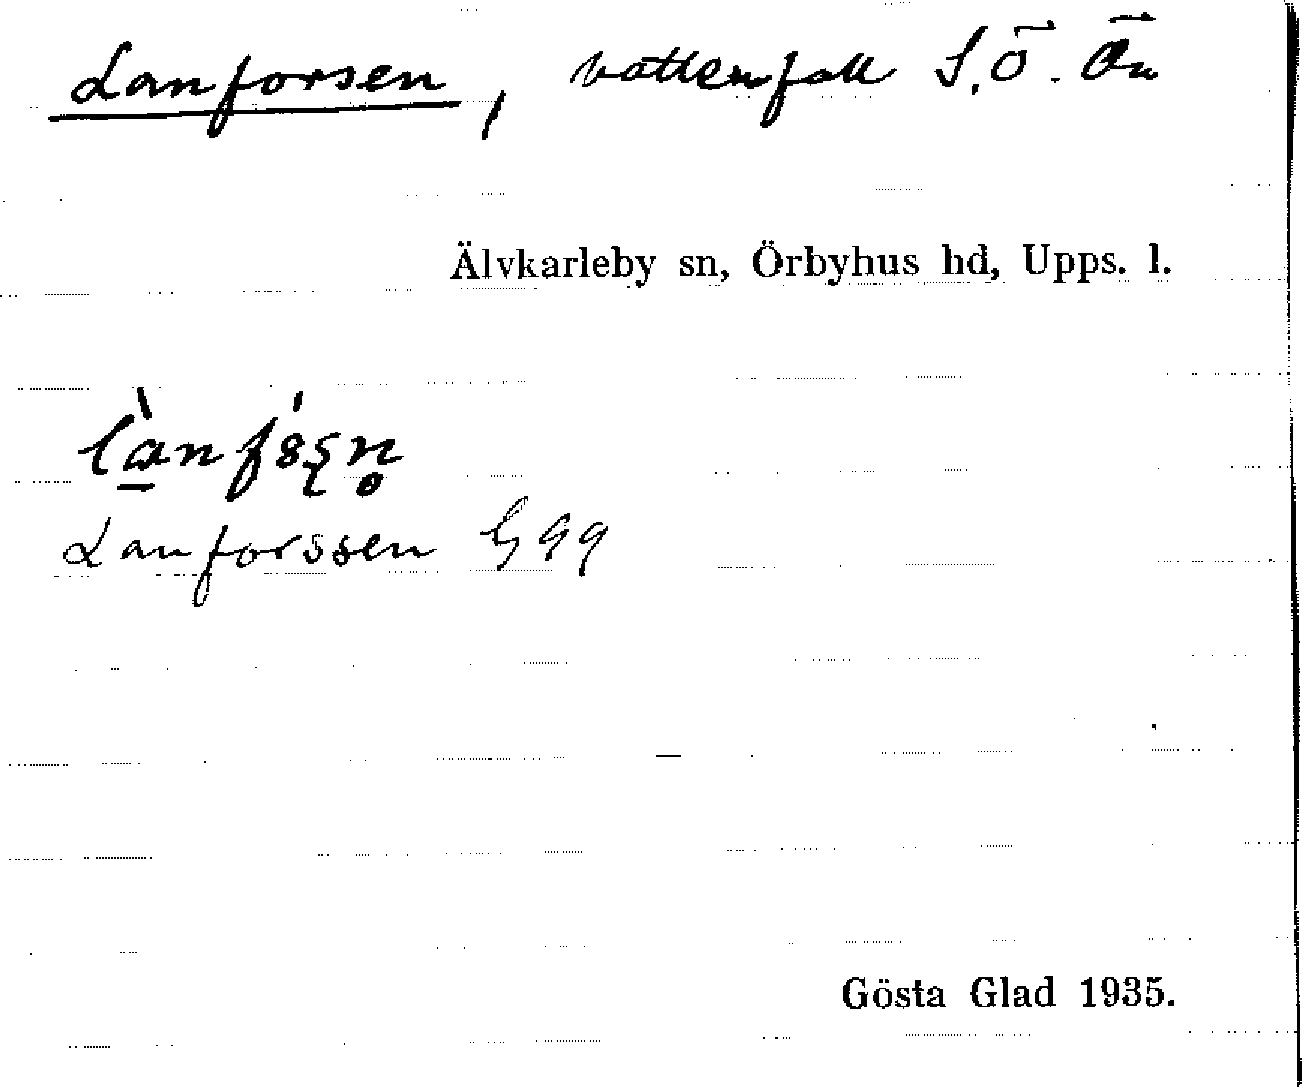 Lanforsen, vattenfall S.Ö. Ön
Älvkarleby sn, Örbyhus hd, Upps. l.
Lanforssen G 99
Gösta Glad 1935.